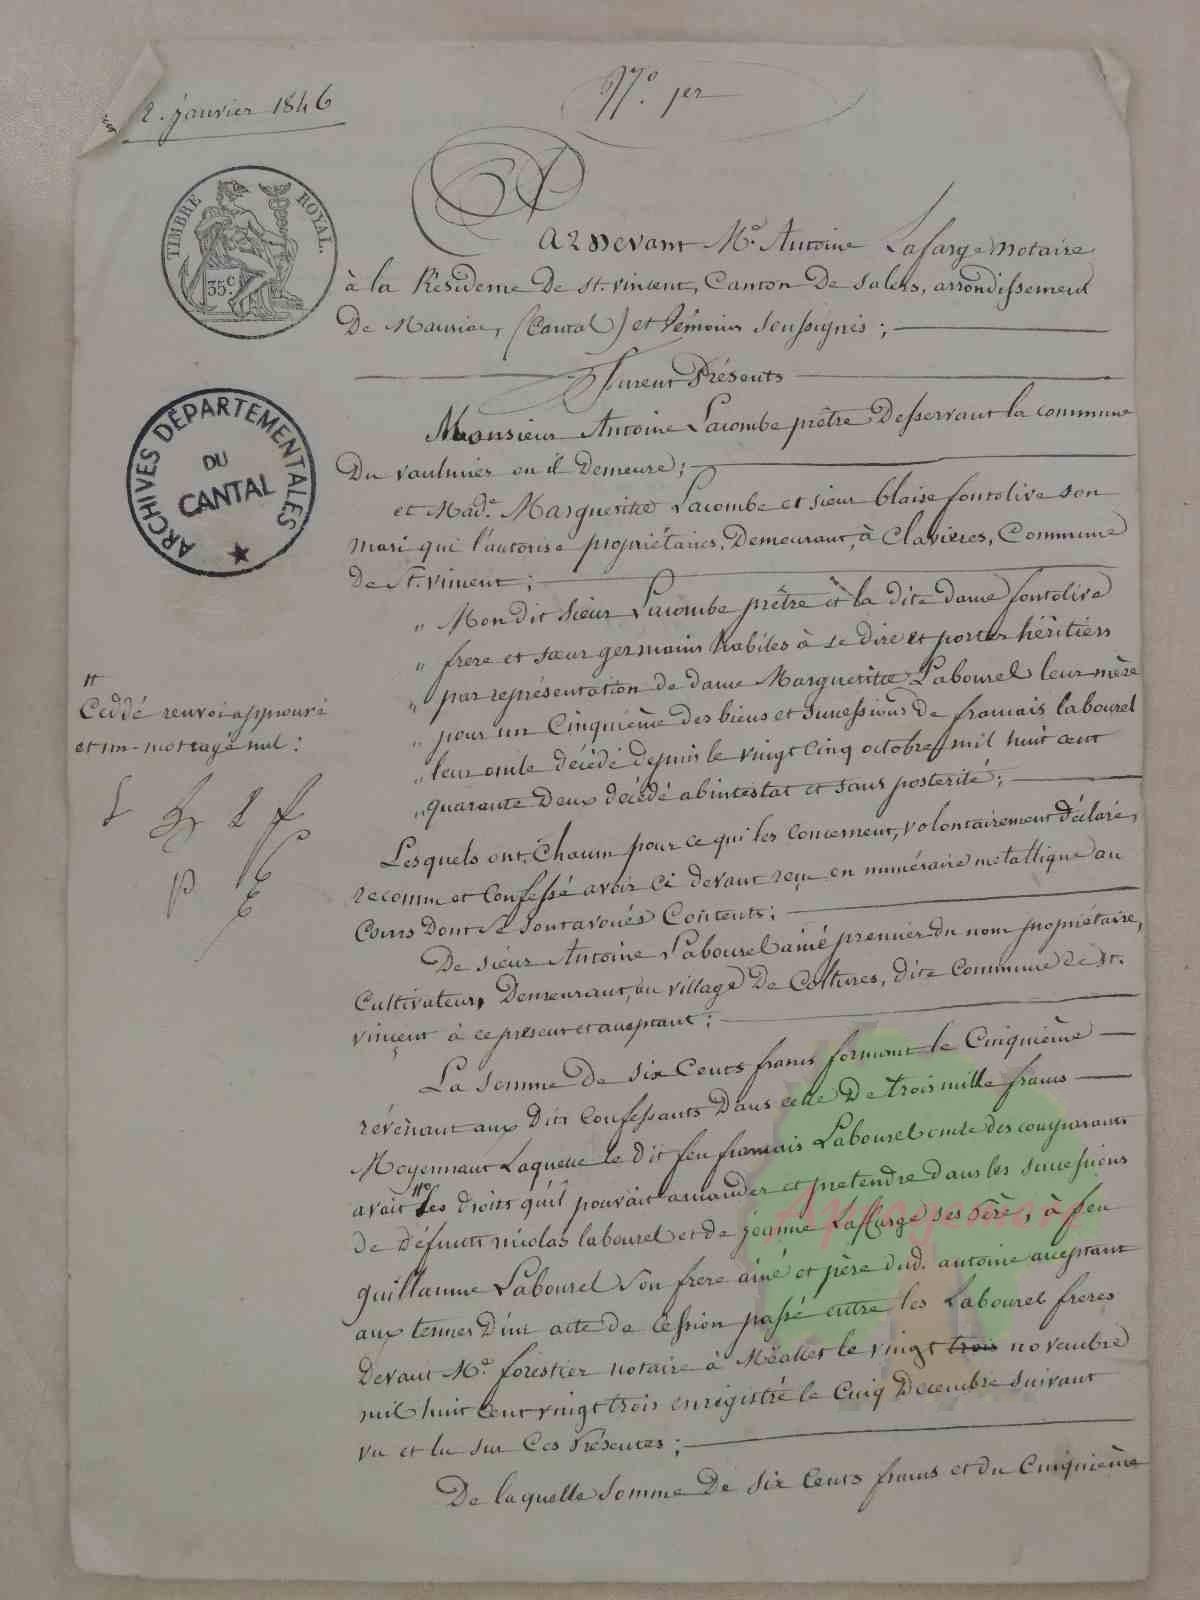 2. janvier 1846
N.º 1er
TIMBRE ROYAL.
35 c.
Pardevant Me. Antoine Lafarge notaire
à la Résidence De St. vincent, Canton De salers, arrondissement
De Mauriac, (Cantal) et témoins soussignés ;
Furent Présents
ARCHIVES DÉPARTEMENTALES
DU
CANTAL
Monsieur Antoine Lacombe prêtre Desservant la commune
Du vaulmier ou il demeure ;
et Made. Margueritte Lacombe et sieur blaise fontolive son
mari qui l'autorise propriétaires, Demeurant, à Clavieres, Commune
de St. vincent ;
„ Mon dit sieur Lacombe prêtre et la dite dame fontolive
„ frere et sœur germains habiles à se dire et porter héritiers
„ par représentation de dame Marguerite Labourel leur mère
„ pour un Cinquième des biens et successions de francais labourel
„ leur oncle décédé depuis le vingt cinq octobre mil huit cent
„ quarante Deux décédé abintestat et sans posterité ;
Ceddé renvoi approuvé
et un mot rayé nul :
Lesquels ont, Chacun pour ce qui les concernent, volontairement déclaré,
reconnu et confessé avoir ci devant reçu en numéraire metallique au
cours Dont se sont avoués Contents ;
De sieur Antoine Labourel ainé premier du nom propriétaire,
Cultivateur, Demeurant, au village De Coltures, dite Commune de St.
vincent à ce présent et acceptant ;
La somme de six Cents francs formant le Cinquième
révenant aux Dits Confessants Dans celle De trois mille francs
Moyennant Laquelle le dit feu francais Labourel oncle des comparants
avait les droits qu'il pouvait amander et pretendre dans les successions
de défunts nicolas labourel et de jeanne Laffarge ses Père, à feu
guillaume Labourel son frere ainé et père dud. antoine acceptant
aux termes D'un acte de Cession passé entre les Labourel freres
Devant Me. forestier notaire à Méallet le vingt trois novembre
mil huit cent vingt trois enregistré le Cinq Decembre suivant
vu et lu sur Ces Présentes ;
De laquelle somme De six Cents francs et du Cinquième